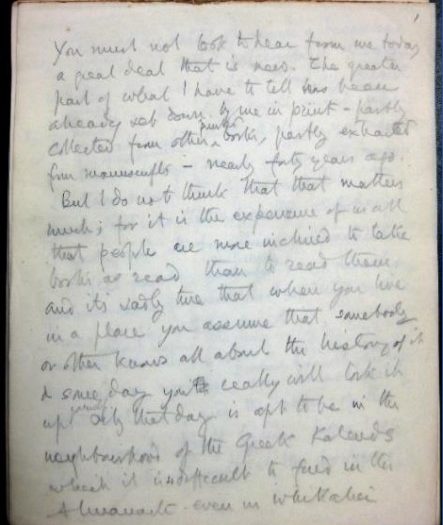 1
You must not look to hear from me today
a great deal that is new. The greater
part of what I have to tell has been
already set down by me in print - partly
collected from other printed books, partly extracted
from manuscripts - nearly forty years ago.
But I do not think that that matters
much; for it is the experience of us all
that people are more inclined to take
books as read than to read them.
and its sadly true that when you live
in a place you assume that somebody
or other knows all about the history of it
& some day you really will look it
up only that day is apt to be in the
neighbourhood of the Greek Kalends
which it is difficult to find in the
Almanack even in Whitaker